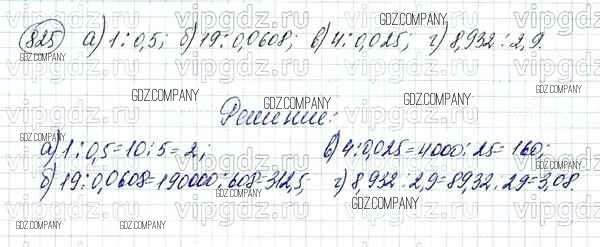 825 а) 1 : 0,5; б) 19 : 0,0608; в) 4 : 0,025; г) 8,932 : 2,9.
Решение:
а) 1 : 0,5 = 10 : 5 = 2; в) 4 : 0,025 = 4000 : 25 = 160;
б) 19 : 0,0608 = 190000 : 608 = 312,5; г) 8,932 : 2,9 = 89,32 : 29 = 3,08.